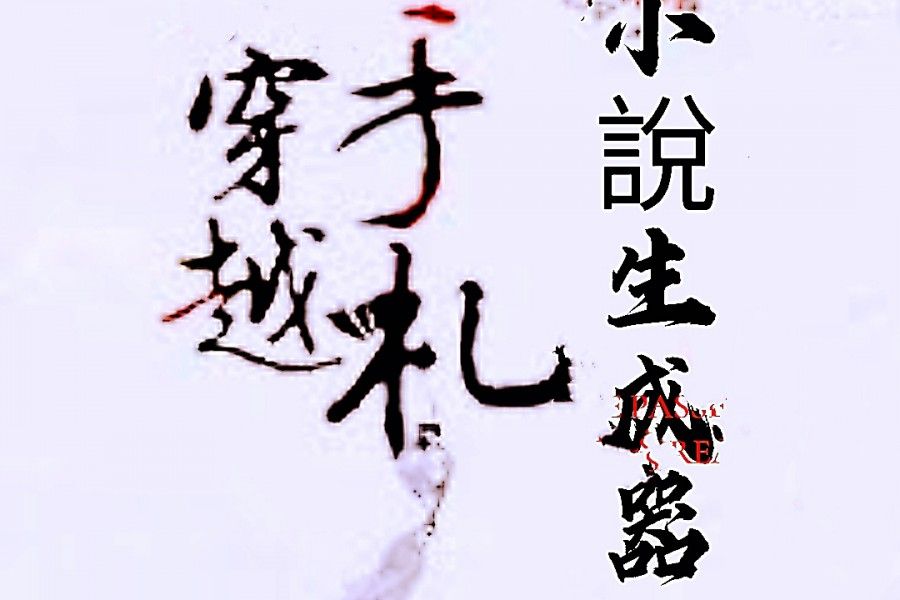 穿越
手札
小說生成器